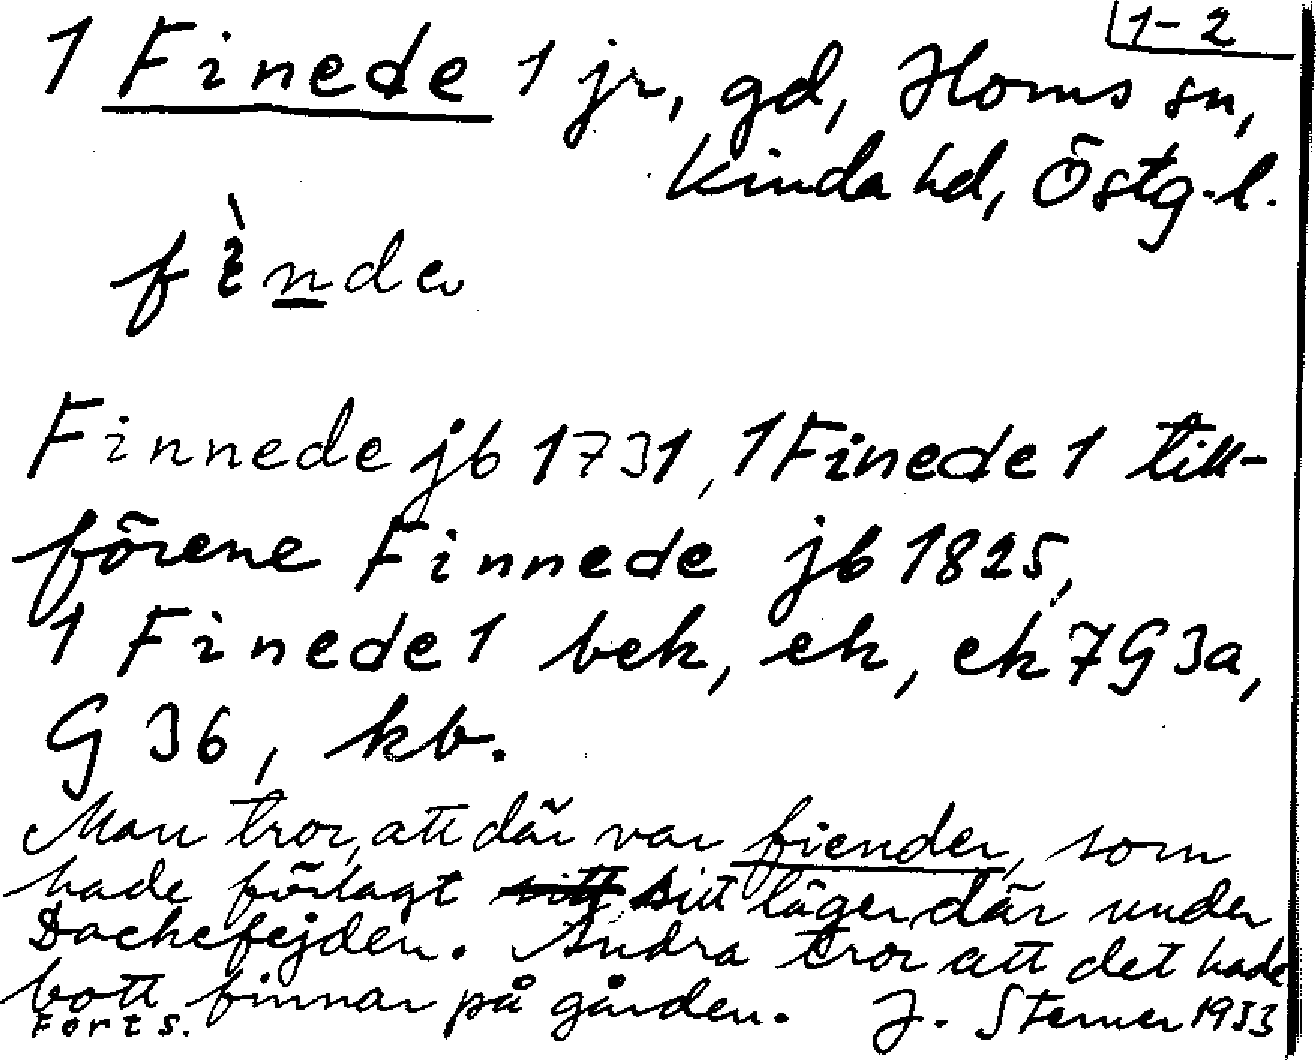 1-2
1 Finede 1 jr, gd, Horns sn,
Kinda hd, Östg.l.
fìnde
Finnede jb 1731, 1 Finede 1 till-
förene Finnede jb 1825,
1 Finede 1 bek, ek, ek 7G3a,
G36, kb.
Man tror, att där var fiender, som
hade förlagt sitt läger där under
Dackefejden. Andra tror att det hade
bott finnar på gården. J. Sterner 1953
Forts.